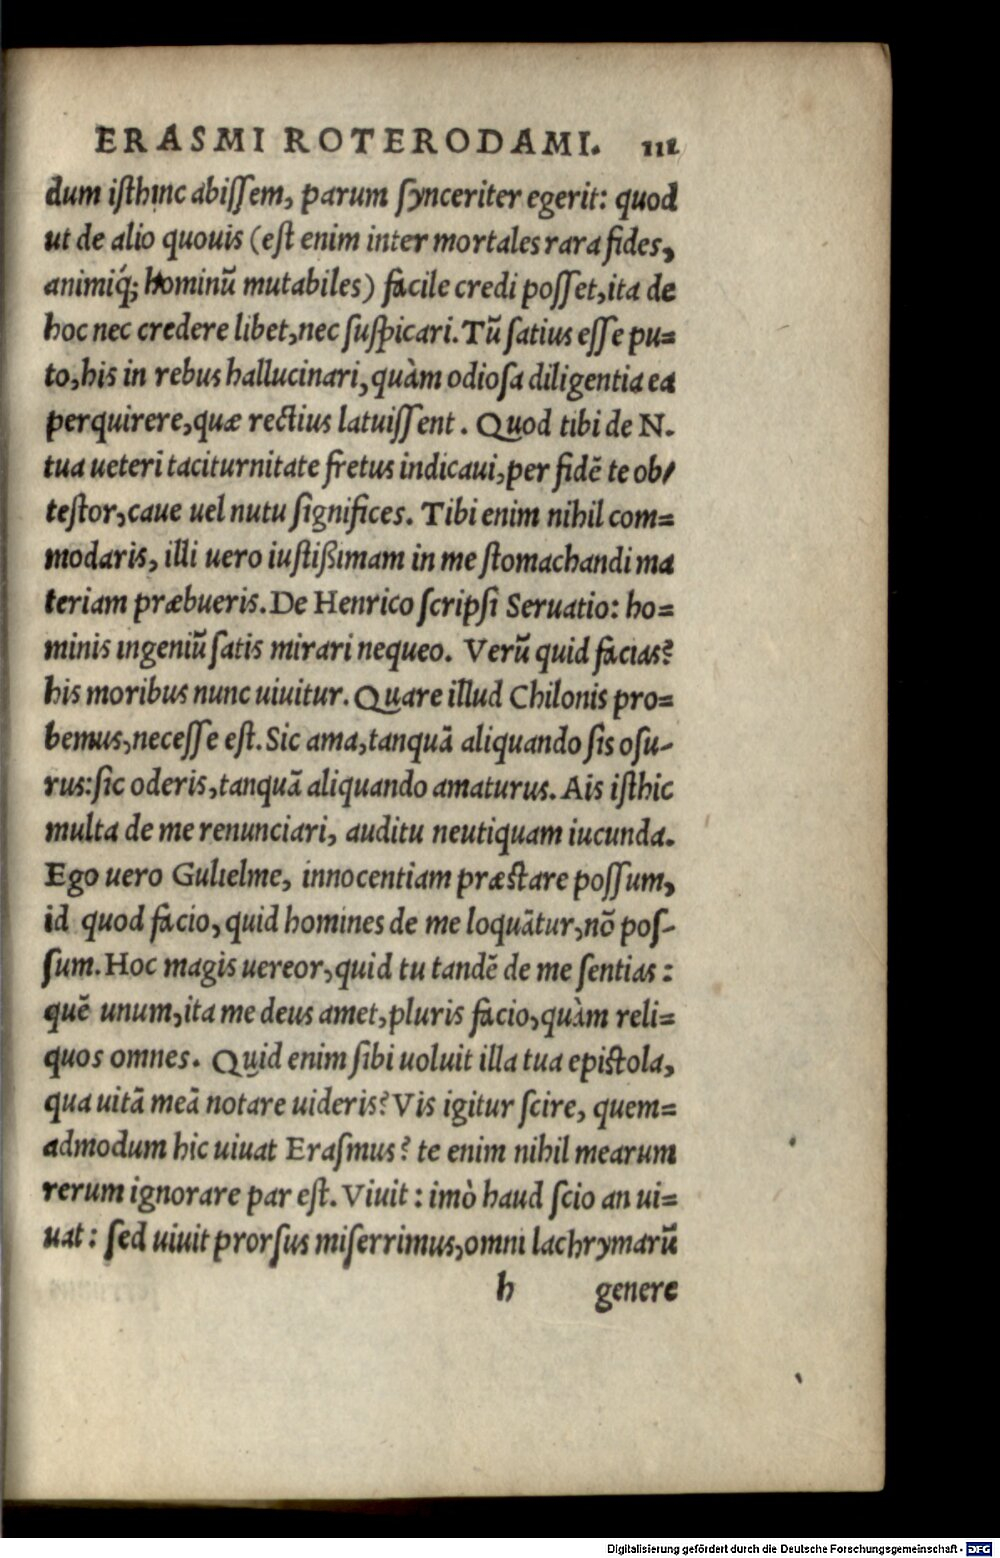 ERASMI ROTERODAMI. 111
dum iſthinc abiſſem, parum ſynceriter egerit: quod
ut de alio quouis (eſt enim inter mortales rara fides,
animiq́; hominũ mutabiles) facile credi poſſet, ita de
hoc nec credere libet, nec ſuſpicari. Tũ ſatius eſſe pu=
to, his in rebus hallucinari, quàm odioſa diligentia ea
perquirere, quæ rectius latuiſſent. Quod tibi de N.
tua ueteri taciturnitate fretus indicaui, per fidẽ te ob/
teſtor, caue uel nutu ſignifices. Tibi enim nihil com=
modaris, illi uero iuſtißimam in me ſtomachandi ma
teriam præbueris. De Henrico ſcripſi Seruatio: ho=
minis ingeniũ ſatis mirari nequeo. Verũ quid facias?
his moribus nunc uiuitur. Quare illud Chilonis pro=
bemus, neceſſe eſt. Sic ama, tanquã aliquando ſis oſu-
rus: ſic oderis, tanquã aliquando amaturus. Ais iſthic
multa de me renunciari, auditu neutiquam iucunda.
Ego uero Gulielme, innocentiam præſtare poſſum,
id quod facio, quid homines de me loquãtur, nõ poſ-
ſum. Hoc magis uereor, quid tu tandẽ de me ſentias:
quẽ unum, ita me deus amet, pluris facio, quàm reli=
quos omnes. Quid enim ſibi uoluit illa tua epiſtola,
qua uitã meã notare uideris? Vis igitur ſcire, quem=
admodum hic uiuat Eraſmus? te enim nihil mearum
rerum ignorare par eſt. Viuit: imò haud ſcio an ui=
uat: ſed uiuit prorſus miſerrimus, omni lachrymarũ
h genere
Digitalisierung gefördert durch die Deutsche Forschungsgemeinschaft - DFG